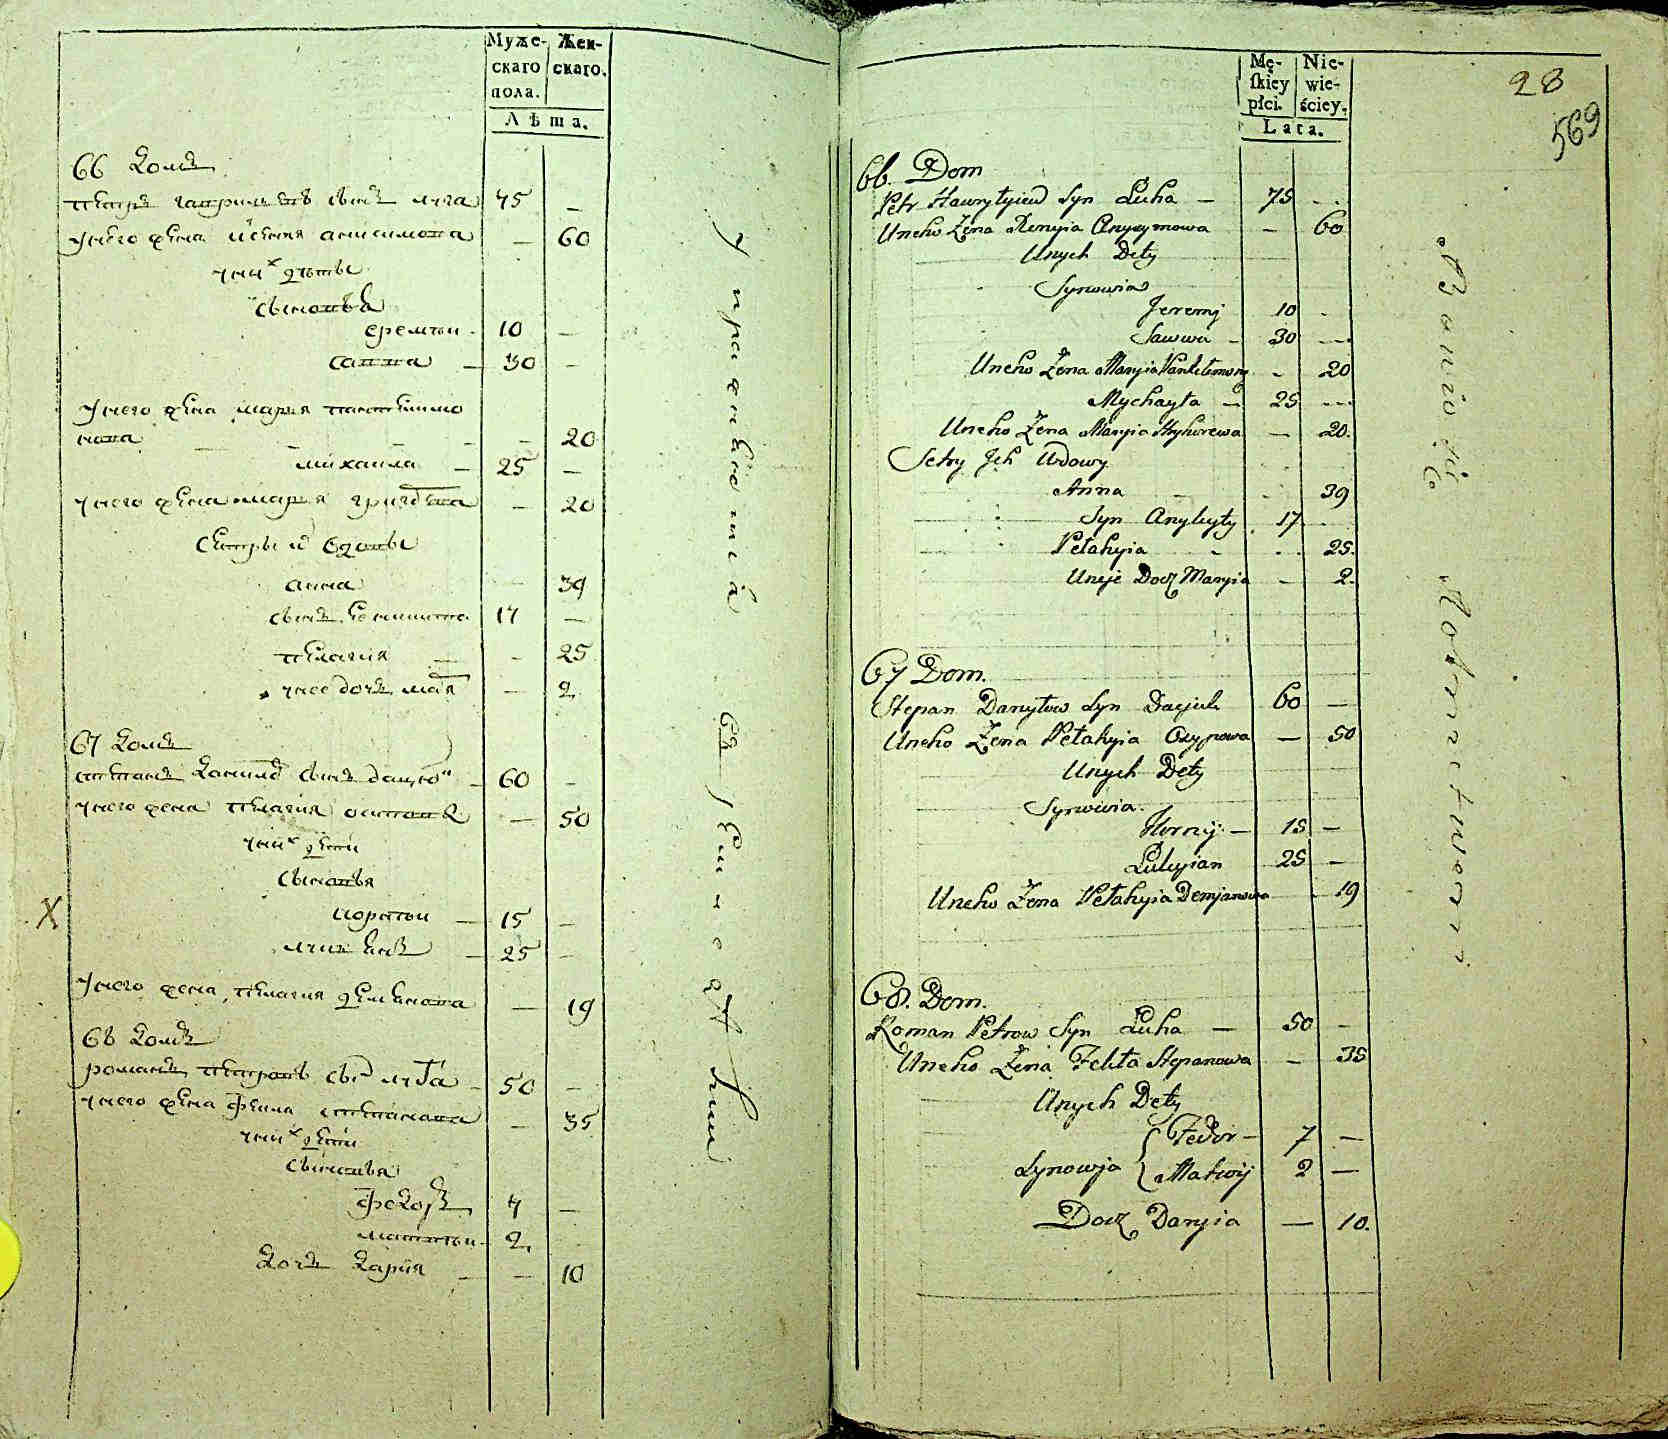 Муже-
скаго
пола.
Жен-
скаго.
Лѣта.
66 Домъ
петръ гаврилевъ сынъ луга 75 —
унего жена ксения анисимова — 60
уних дѣты
сыновья
еремѣи - 10 —
савва — 30 —
унего жена марья пантелимо
нова — — — — 20
михаила — 25 —
унего жена марья григова — 20
сестры и вдовы
анна — 39
сынъ 17 —
пелагия — - 25
унее дочь мая — 2
67 Домъ
степанъ данилов сынъ дацко — 60 -
унего жена пелагия осипова — 50
уних дети
сыновья
корнѣи — 15 —
лукиянъ — 25 -
унего жена, пелагия демянова — 19
68 Домъ
романъ петровъ сын луга - 50 —
унего жена фекла степанова — 35
уних дети
сыновья
федоръ 7 —
матвѣи - 2,
дочь дария — — 10
у присяжные
Mę-
skiey
płci.
Nie-
wie-
ściey.
Lata.
28
569
66. Dom
Petr Hawryłyiew Syn Łuha — 75 - .
Uneho Żena Xenyia Anyzymowa — 60
Unych Dety
Synowia
Jeremj 10 .
Sawwa - 30 —
Uneho Żena Maryia Pantelemony - 20
Mychayła — 25 ---
Uneho Żena Maryia Hryhorewa — 20.
Setry Jch Wdowy
Anna - . 39
Syn Anykyty 17
Pełahyia - . . 25.
Uneje Docz Maryia — 2.
67 Dom.
Stepan Danyłow Syn Dacjuk 60 —
Uneho Żena Pełahyia Osypowa — 50
Unych Dety
Synowia.
Kornij. — 15 —
Łukyian 25 —
Uneho Żena Pełahyia Demjanowa - 19
68. Dom.
Roman Petrow Syn Łuha — 50 —
Uneho Żena Fekła Stepanowa — 35
Unych Dety
Synowja { Fedor — 7 —
Matwij 2 —
Docz Daryia — 10.